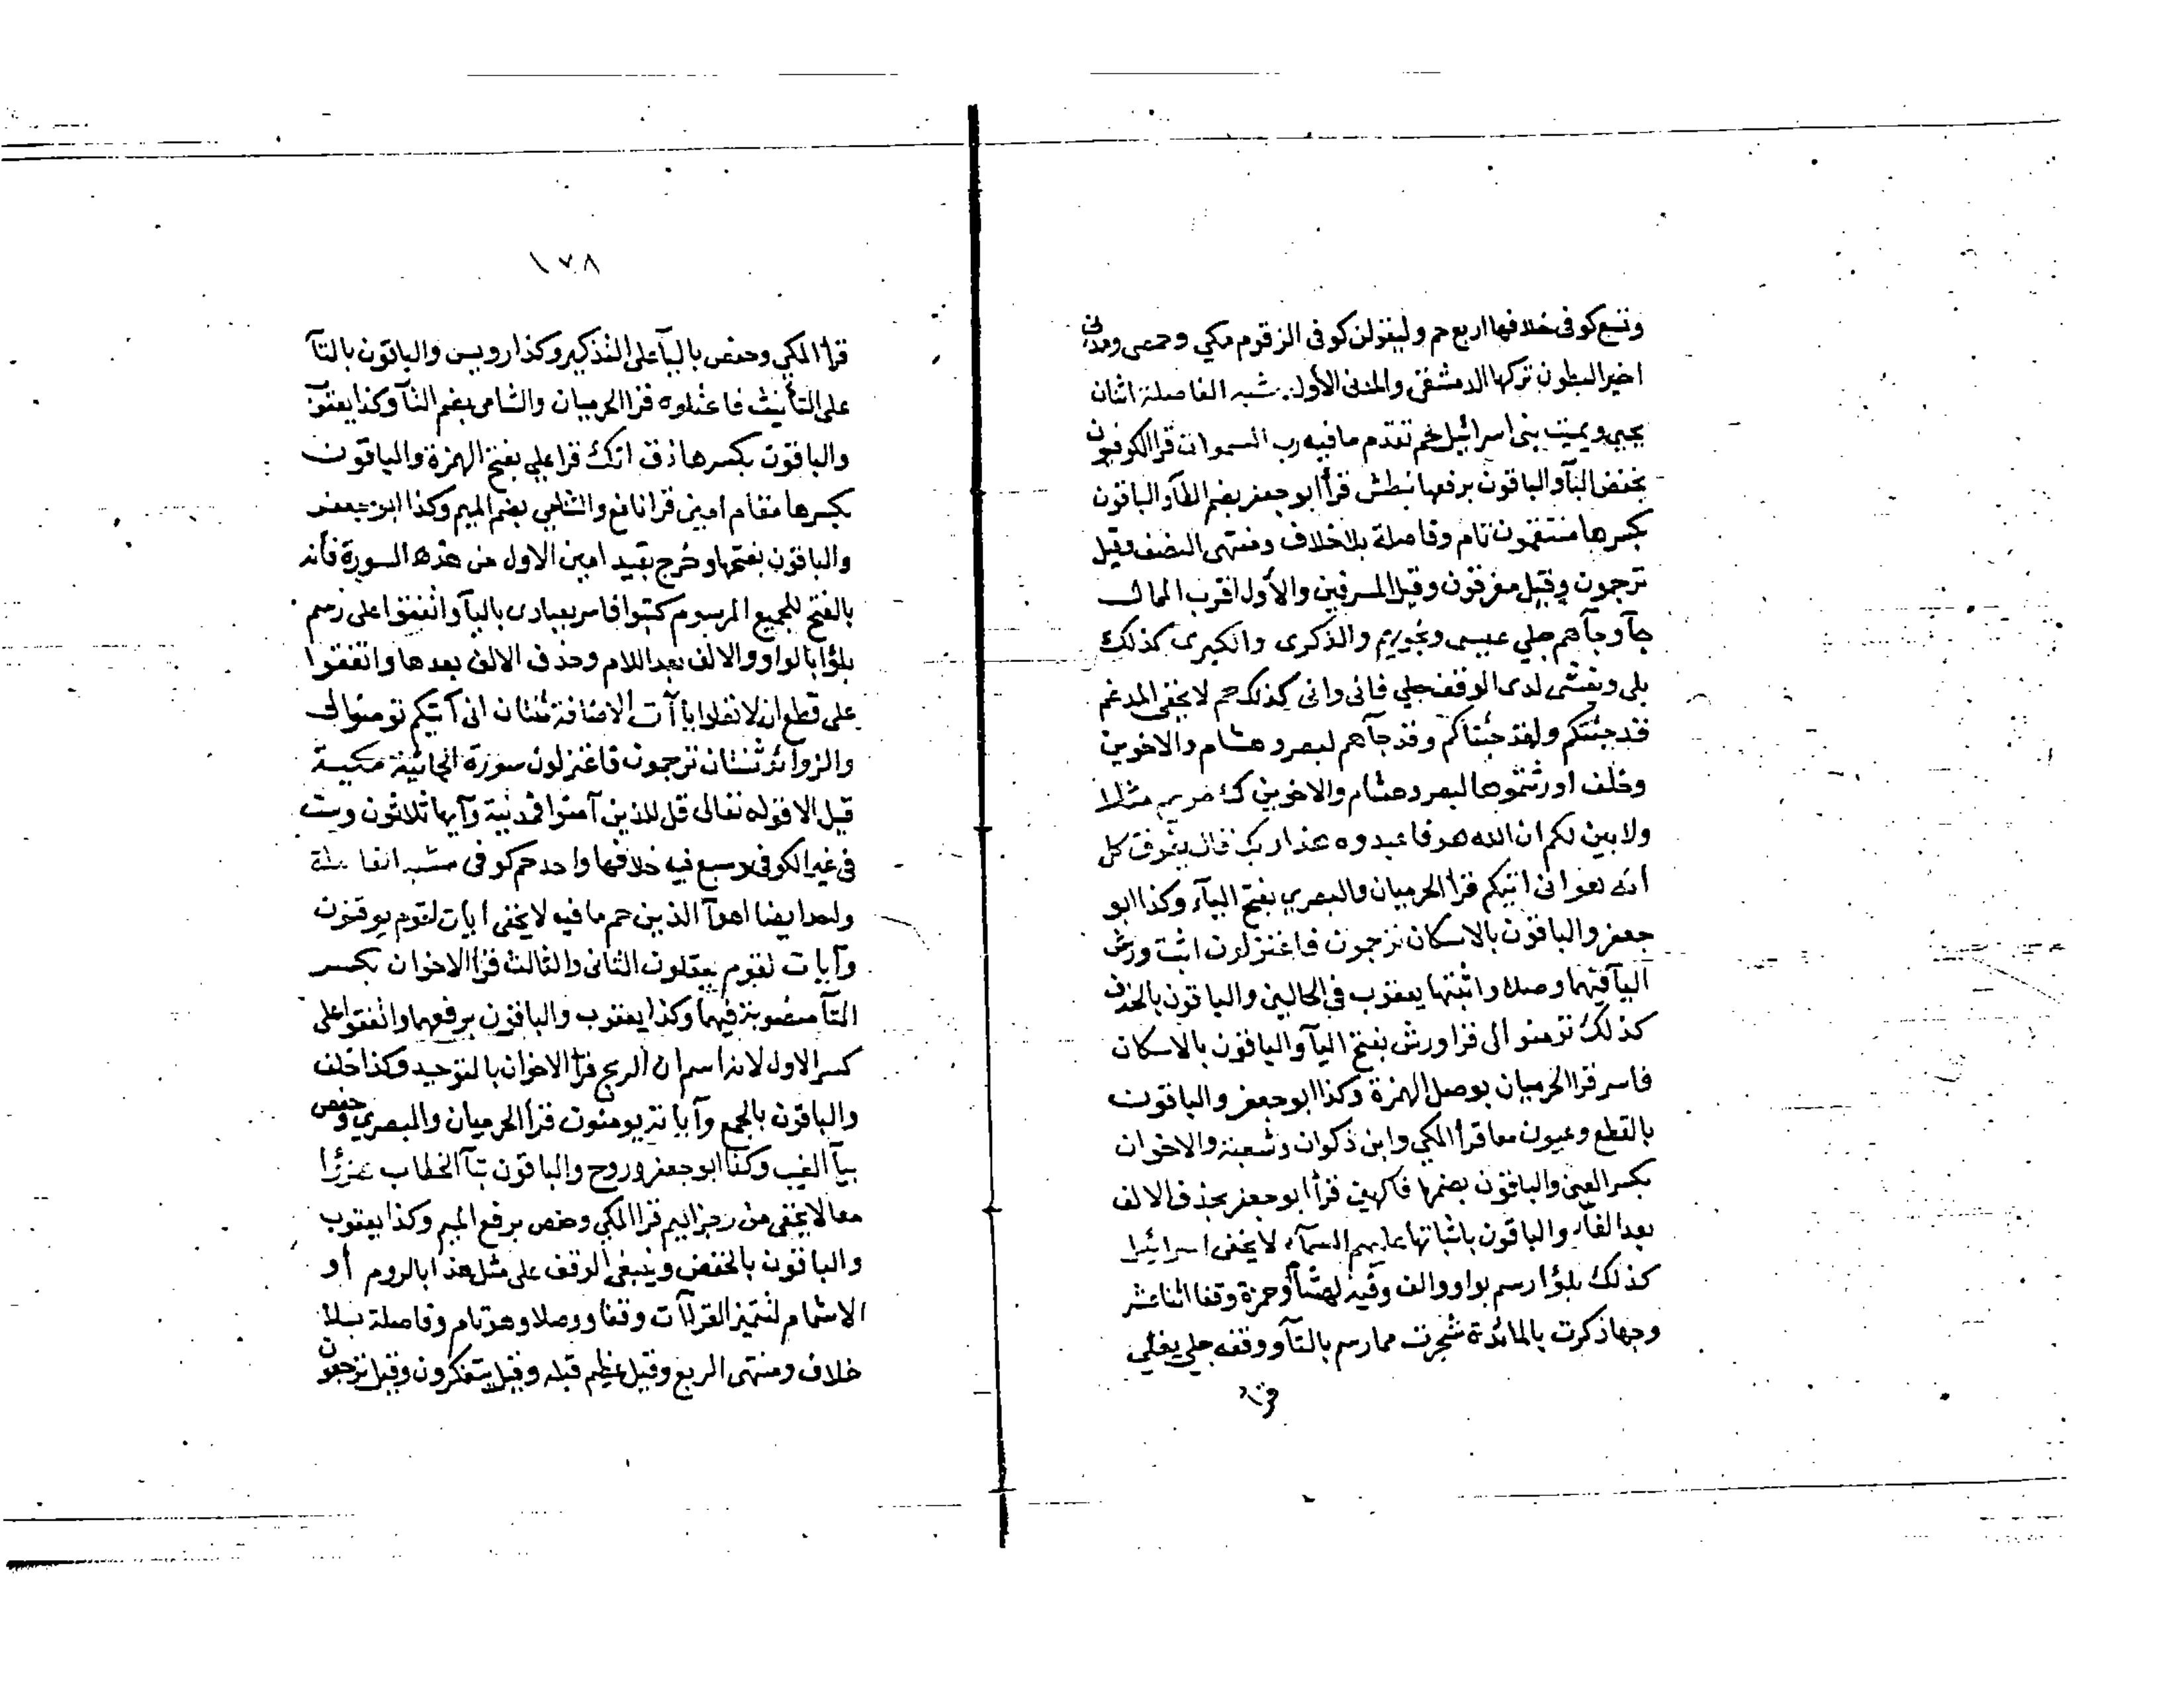 وتسع كوفى خلافها اربع حم وليقولن كوفى الزقوم مكي وحمصى ومدنى
اخير البطون تركها الدمشقى والمدنى الأول. شبه الفاصلة اثنان
يحيى ويميت بنى اسرائيل حم تقدم ما فيه رب السموات قرا الكوفيون
بخفض البآ والباقون برفعها نبطش قرأ ابو جعفر بضم الطآ والباقون
بكسرها منتقمون تام وفاصلة بلا خلاف ومنتهى النصف وقيل
ترجمون وقيل مغرقون وقيل المسرفين والأول اقرب الممال
جآ وجآهم جلي عيسى ونجويهم والذكرى والكبرى كذلك
بلى ويغشى لدى الوقف جلي فانى وانى كذلك حم لا يخفى المدغم
قد جئتكم ولقد جئناكم وقد جآهم لبصر وهشام والاخوين
وخلف اورثتموها لبصر وهشام والاخوين ك مريم مثلا
ولابين لكم ان الله هو فاعبدوه هذا ربك قال يفرق كل
انه هو انى اتيكم قرا الحرميان والبصري بفتح اليآء وكذا ابو
جعفر والباقون بالاسكان ترجمون فاعتزلون اثبت ورش
اليآ فيهما وصلا واثبتها يعقوب فى الحالين والباقون بالحذف
كذلك تومنوا لى قرا ورش بفتح اليآ والباقون بالاسكان
فاسر قرا الحرميان بوصل الهمزة وكذا ابو جعفر والباقون
بالقطع وعيون معا قرأ المكي وابن ذكوان وشعبة والاخوان
بكسر العين والباقون بضمها فاكهين قرأ ابو جعفر بحذف الالف
بعد الفآء والباقون باثباتها عليهم السمآء لا يخفى اسرائيل
كذلك بلؤا رسم بواو والف وفيه لهشام وحمزة وقفا اثنا عشر
وجها ذكرت بالمائدة شجرت مما رسم بالتآ ووقفه جلي يغلي
قرا
١٧٨
قرأ المكي وحفص باليآ على التذكير وكذا رويس والباقون بالتآ
على التأنيث فاعتلوه قرا الحرميان والشامى بضم التآ وكذا يعقوب
والباقون بكسرها ذق انك قرا علي بفتح الهمزة والباقون
بكسرها مقام امين قرا نافع والشامي بضم الميم وكذا ابو جعفر
والباقون بفتحها وخرج بقيد امين الاول من هذه السورة فأنه
بالفتح للجميع المرسوم كتبوا فاسر بعبادى باليآ واتفقوا على رسم
بلؤا بالواو والالف بعد اللام وحذف الالف بعدها واتفقوا
على قطع ان لا تعلوا ياآت الاضافة ثنتان انى آتيكم تومنوا لى
والزوائد ثنتان ترجمون فاعتزلون سورة الجاثية مكية
قيل الا قوله تعالى قل للذين آمنوا فمدنية وآيها ثلاثون وست
فى غير الكوفى وسبع فيه خلافها واحد حم كوفى مشبه الفاصلة
واحد ايضا اهوآ الذين حم ما فيه لا يخفى ايات لقوم يوقنون
وآيات لقوم يعقلون الثانى والثالث قرأ الاخوان بكسر
التآ منصوبة فيهما وكذا يعقوب والباقون برفعهما واتفقوا على
كسر الاول لانه اسم ان الريح قرأ الاخوان بالتوحيد وكذا خلف
والباقون بالجمع وآياته يومنون قرأ الحرميان والبصري وحفص
بيآ الغيب وكذا ابو جعفر وروح والباقون بتآ الخطاب هزؤا
معا لا يخفى من رجز اليم قرا المكي وحفص برفع الميم وكذا يعقوب
والباقون بالخفض وينبغى الوقف على مثل هذا بالروم أو
الاشمام لتتميز القرآآت وقفا ووصلا وهو تام وفاصلة بلا
خلاف ومنتهى الربع وقيل عظيم قبله وقيل يتفكرون وقيل ترجعون